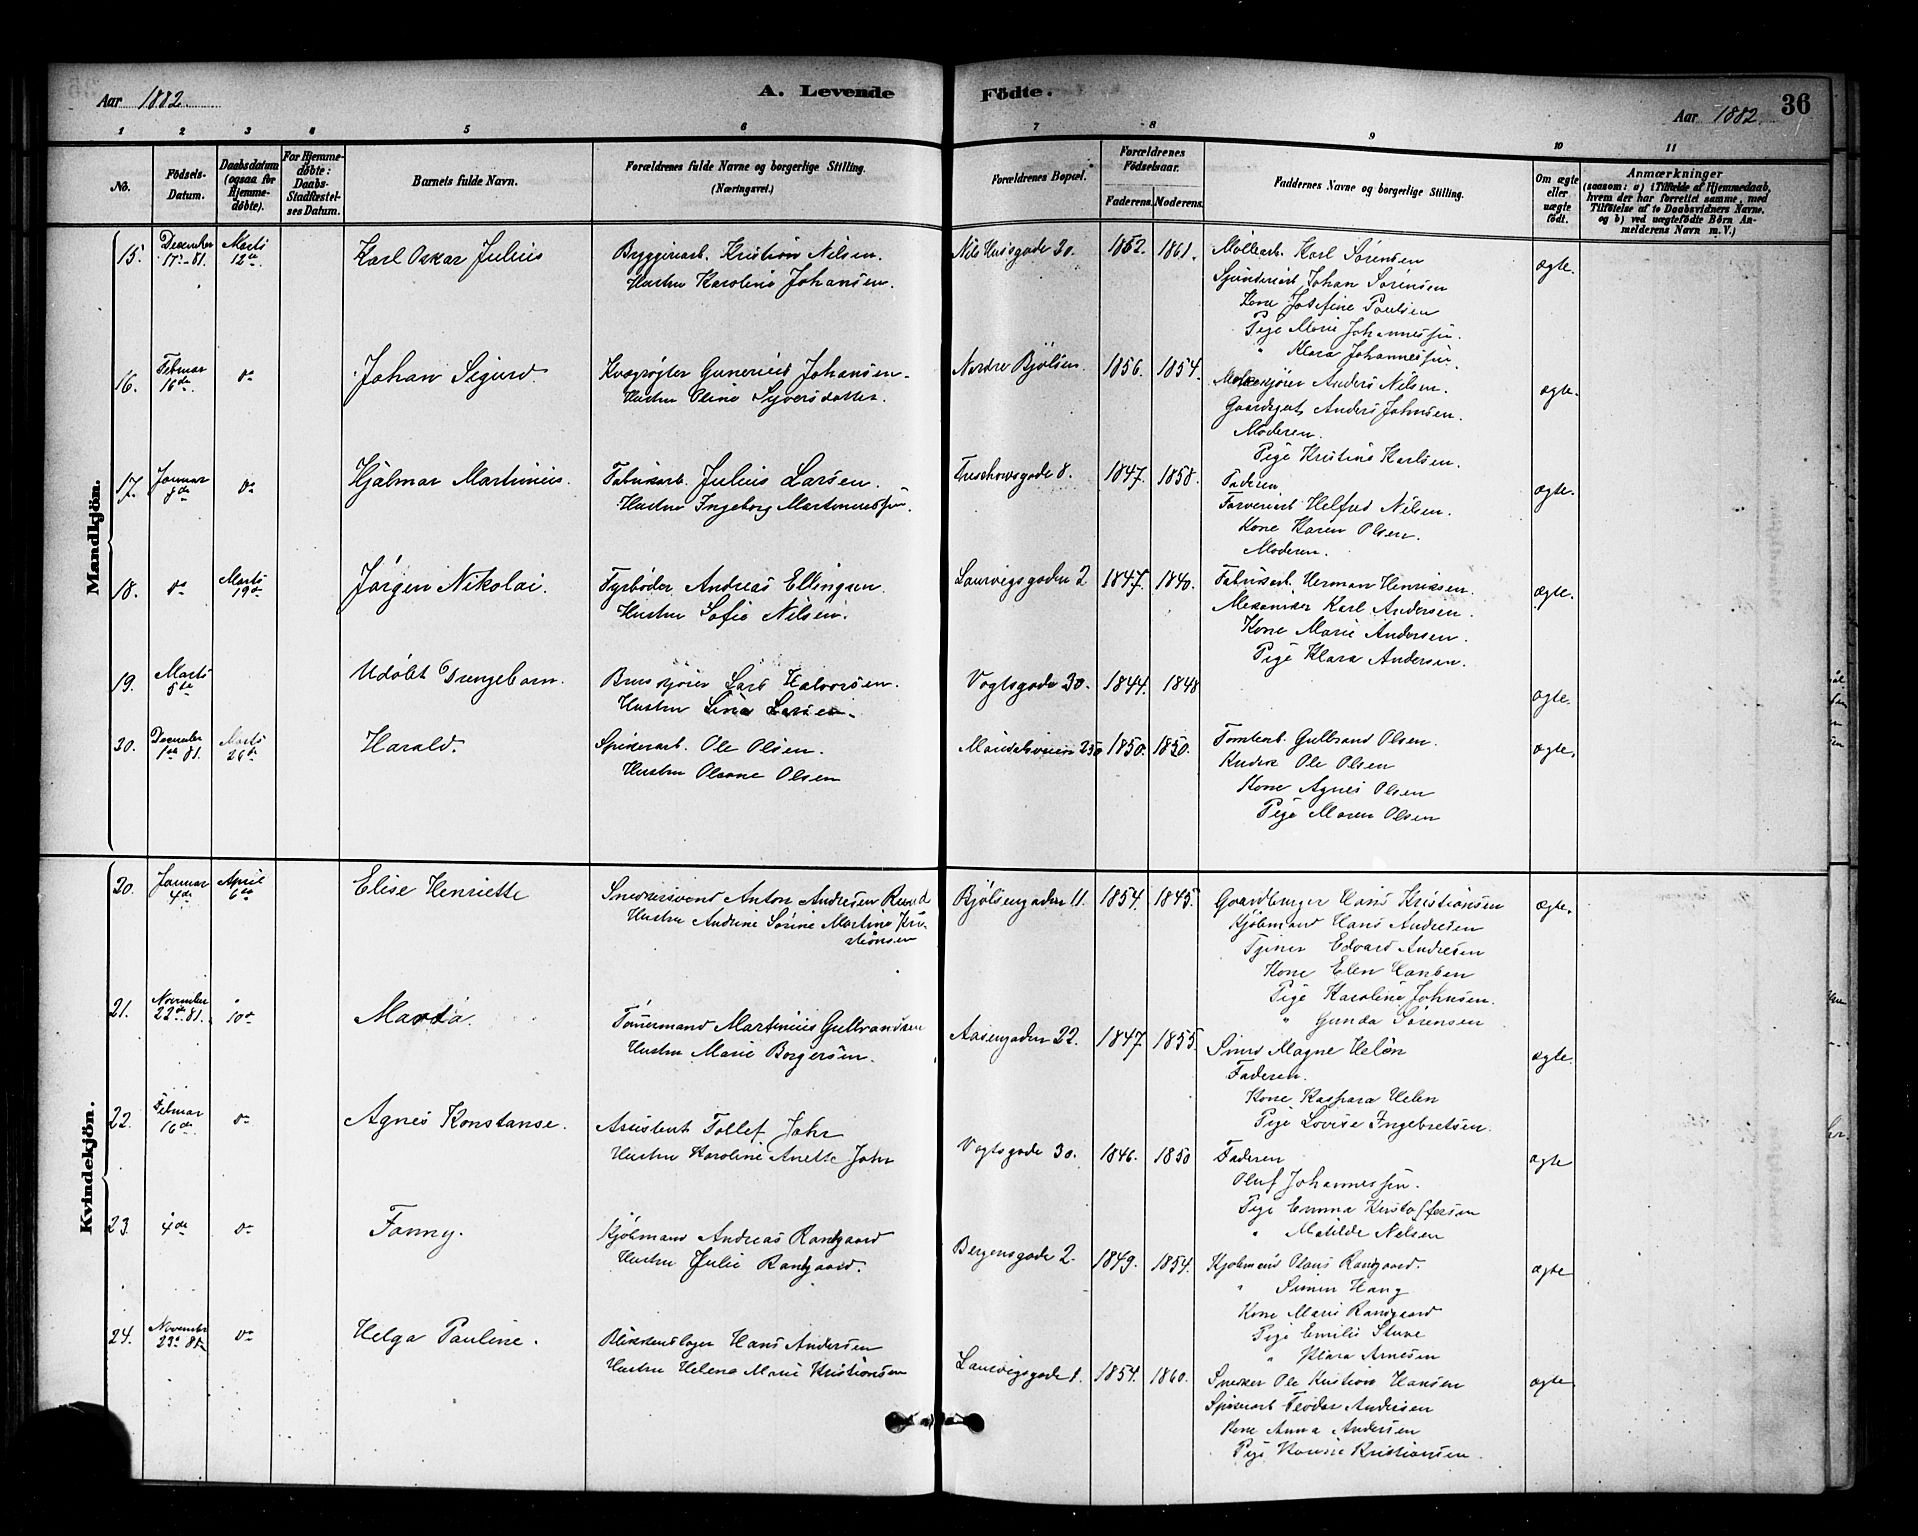 Aar 1882.
A. Levende Födte.
Aar 1882.
36
1 2 3 4 5 6 7 8 9 10 11
No.
Födsels-Datum.
Daabsdatum (ogsaa for Hjemmedøbte).
For Hjemmedøbte: Daabs-Stadfæstelses Datum.
Barnets fulde Navn.
Forældrenes fulde Navne og borgerlige Stilling.
(Næringsvei.)
Forældrenes Bopæl.
Forældrenes Födselsaar.
Faderens. Moderens.
Faddernes Navne og borgerlige Stilling.
Om ægte eller uægte født.
Anmærkninger
(saasom: a) i Tilfælde af Hjemmedaab, hvem der har forrettet samme, med Tilföielse af to Daabsvidners Navne, og b) ved uægtefödte Börn Anmelderens Navn m. V.)
Mandkjön.
15. December 17de 81. Marts 12te Karl Oskar Julius
Bryggeriarb. Kristian Nilsen.
Hustru Karoline Johansen.
Nils Huusgade 30. 1852. 1861.
Møllearb. Karl Sørensen
Spinderiarb. Johan Sørensen
Kone Josefine Paulsen
Pige Marie Johannessen.
" Klara Johannessen.
ægte.
16. Februar 16de do Johan Sigurd.
Kvægrøgter Gunerius Johansen.
Hustru Oline Syversdatter.
Nordre Bjølsen. 1856. 1854.
Melkekjører Anders Nilsen.
Gaardsgut Anders Johnsen.
Moderen.
Pige Kristine Karlsen.
ægte.
17. Januar do Hjalmar Martinius.
Fabrikarb. Julius Larsen.
Hustru Ingeborg Martinussen.
Treschowsgade 8. 1847. 1858.
Faderen
Farveriarb Helfred Nilsen.
Kone Karen Olsen.
Moderen.
ægte.
18. do Marts 19de Jørgen Nikolai.
Fyrbøder Andreas Ellingsen.
Hustru Sofie Nilsen.
Laurvigsgaden 2 1847. 1840.
Fabrikarb. Herman Henriksen.
Mekaniker Karl Andersen.
Kone Marie Andersen.
Pige Klara Andersen.
ægte.
19. Marts 5te Udøbt Drengebarn.
Lars Halvorsen.
Hustru Lina Larsen.
Vogtsgade 30. 1844. 1848
ægte.
30. December 1ste 81. Marts 26de Harald.
Spigerarb. Ole Olsen.
Hustru Oleane Olsen
Maridalsveien 250 1850. 1850.
Tomtearb. Gulbrand Olsen.
Kudsk Ole Olsen
Kone Agnes Olsen
Pige Maren Olsen
ægte.
Kvindekjön.
20. Januar 4de April 6te Elise Henriette
Snedkersvend Anton Andresen Ruud
Hustru Andrine Sørine Martine Kristiansen
Bjølsengaden 11. 1854. 1845.
Gaardbruger Hans Kristiansen
Kjøbmand Hans Andresen
Tjener Edvard Andresen
Kone Elen Hansen
Pige Karoline Johnsen.
" Gunda Sørensen
ægte.
21. November 22de 81. " 10de Marta.
Tømmermand Martinius Gulbrandsen
Hustru Marie Borgersen.
Aasengaden 22. 1847 1855.
Smed Magne Helen
Faderen.
Kone Kaspara Helen
Pige Lovise Ingebretsen.
ægte.
22. Februar 16de do Agnes Konstanse.
Assistent Tollef Jahr
Hustru Karoline Anette Jahr
Vogtsgade 30. 1846. 1850
Faderen
Oluf Johannessen.
Pige Emma Kristoffersen
" Matilde Nelsen
ægte
23. 4de do Fanny.
Kjøbmand Andreas Randgaard
Hustru Julie Randgaard.
Bergensgade 2. 1849. 1854.
Kjøbmand Olaus Randgaard.
" Simen Haug
Kone Marie Randgaard
Pige Emilie Stuve
" Klara Arnesen
ægte
24. November 23de 81 do Helga Pauline.
Blikkenslager Hans Andersen
Hustru Helena Marie Kristiansen
Laurvigsgade 1. 1854. 1860.
Snedker Ole Kristian Hansen
Spigerarb Teodor Andersen
Kone Anna Andersen
Pige Kristiansen.
ægte